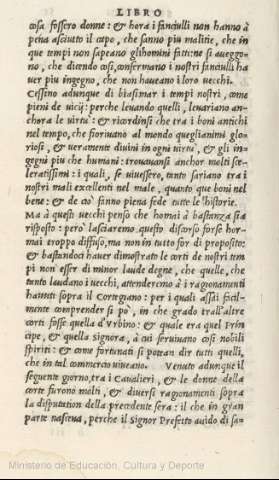 LIBRO
cosa fossero donne: & hora i fanciulli non hanno à
pena asciutto il capo, che sanno piu malitie, che in
que tempi non sapeano gli homini fatti: ne si aueggo-
no, che dicendo cosi, confermano i nostri fanciulli ha
uer piu ingegno, che non haueano i loro uecchi.
Cessino adunque di biasimar i tempi nostri, come
pieni de uicij: perche leuando quelli, leuariano an-
chora le uirtù: & ricordinsi che tra i boni antichi
nel tempo, che fioriuano al mondo quegli animi glo-
riosi, & ueramente diuini in ogni uirtù, & gli in-
gegni piu che humani: trouauansi anchor molti sce-
leratissimi: i quali, se uiuessero, tanto sariano tra i
nostri mali eccellenti nel male, quanto que boni nel
bene: & de ciò fanno piena fede tutte le historie.
Ma à questi uecchi penso che homai à bastanza sia
risposto: però lasciaremo questo discorso forse hor-
mai troppo diffuso, ma non in tutto for di proposito:
& bastandoci hauer dimostrato le corti de nostri tem
pi non esser di minor laude degne, che quelle, che
tanto laudano i uecchi, attenderemo à i ragionamenti
hauuti sopra il Cortegiano: per i quali assai facil-
mente comprender si pò, in che grado trall'altre
corti fosse quella d'Vrbino: & quale era quel Prin
cipe, & quella signora, à cui seruiuano cosi nobili
spiriti: & come fortunati si potean dir tutti quelli,
che in tal commercio uiueano. Venuto adunque il
seguente giorno, tra i Caualieri, & le donne della
corte furono molti, & diuersi ragionamenti sopra
la disputation della precedente sera: il che in gran
parte nasceua, perche il signor Prefetto auido di sa-
Ministerio de Educación, Cultura y Deporte